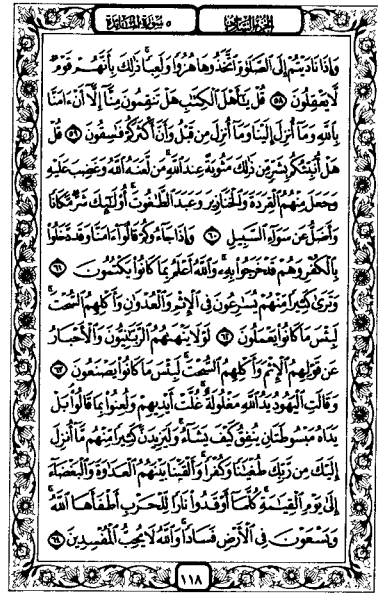 الجزء السادس
٥ سورة المائدة
وَإِذَا نَادَيْتُمْ إِلَى الصَّلَوٰةِ اتَّخَذُوهَا هُزُوًا وَلَعِبًا ذَٰلِكَ بِأَنَّهُمْ قَوْمٌ
لَّا يَعْقِلُونَ ٥٨ قُلْ يَٰٓأَهْلَ الْكِتَٰبِ هَلْ تَنقِمُونَ مِنَّآ إِلَّآ أَنْ ءَامَنَّا
بِاللَّهِ وَمَآ أُنزِلَ إِلَيْنَا وَمَآ أُنزِلَ مِن قَبْلُ وَأَنَّ أَكْثَرَكُمْ فَٰسِقُونَ ٥٩ قُلْ
هَلْ أُنَبِّئُكُم بِشَرٍّ مِّن ذَٰلِكَ مَثُوبَةً عِندَ اللَّهِ مَن لَّعَنَهُ اللَّهُ وَغَضِبَ عَلَيْهِ
وَجَعَلَ مِنْهُمُ الْقِرَدَةَ وَالْخَنَازِيرَ وَعَبَدَ الطَّٰغُوتَ أُو۟لَٰٓئِكَ شَرٌّ مَّكَانًا
وَأَضَلُّ عَن سَوَآءِ السَّبِيلِ ٦٠ وَإِذَا جَآءُوكُمْ قَالُوٓا ءَامَنَّا وَقَد دَّخَلُوا
بِالْكُفْرِ وَهُمْ قَدْ خَرَجُوا بِهِۦ وَاللَّهُ أَعْلَمُ بِمَا كَانُوا يَكْتُمُونَ ٦١
وَتَرَىٰ كَثِيرًا مِّنْهُمْ يُسَٰرِعُونَ فِى الْإِثْمِ وَالْعُدْوَٰنِ وَأَكْلِهِمُ السُّحْتَ
لَبِئْسَ مَا كَانُوا يَعْمَلُونَ ٦٢ لَوْلَا يَنْهَىٰهُمُ الرَّبَّٰنِيُّونَ وَالْأَحْبَارُ
عَن قَوْلِهِمُ الْإِثْمَ وَأَكْلِهِمُ السُّحْتَ لَبِئْسَ مَا كَانُوا يَصْنَعُونَ ٦٣
وَقَالَتِ الْيَهُودُ يَدُ اللَّهِ مَغْلُولَةٌ غُلَّتْ أَيْدِيهِمْ وَلُعِنُوا بِمَا قَالُوا بَلْ
يَدَاهُ مَبْسُوطَتَانِ يُنفِقُ كَيْفَ يَشَآءُ وَلَيَزِيدَنَّ كَثِيرًا مِّنْهُم مَّآ أُنزِلَ
إِلَيْكَ مِن رَّبِّكَ طُغْيَٰنًا وَكُفْرًا وَأَلْقَيْنَا بَيْنَهُمُ الْعَدَٰوَةَ وَالْبَغْضَآءَ
إِلَىٰ يَوْمِ الْقِيَٰمَةِ كُلَّمَآ أَوْقَدُوا نَارًا لِّلْحَرْبِ أَطْفَأَهَا اللَّهُ
وَيَسْعَوْنَ فِى الْأَرْضِ فَسَادًا وَاللَّهُ لَا يُحِبُّ الْمُفْسِدِينَ ٦٤
١١٨